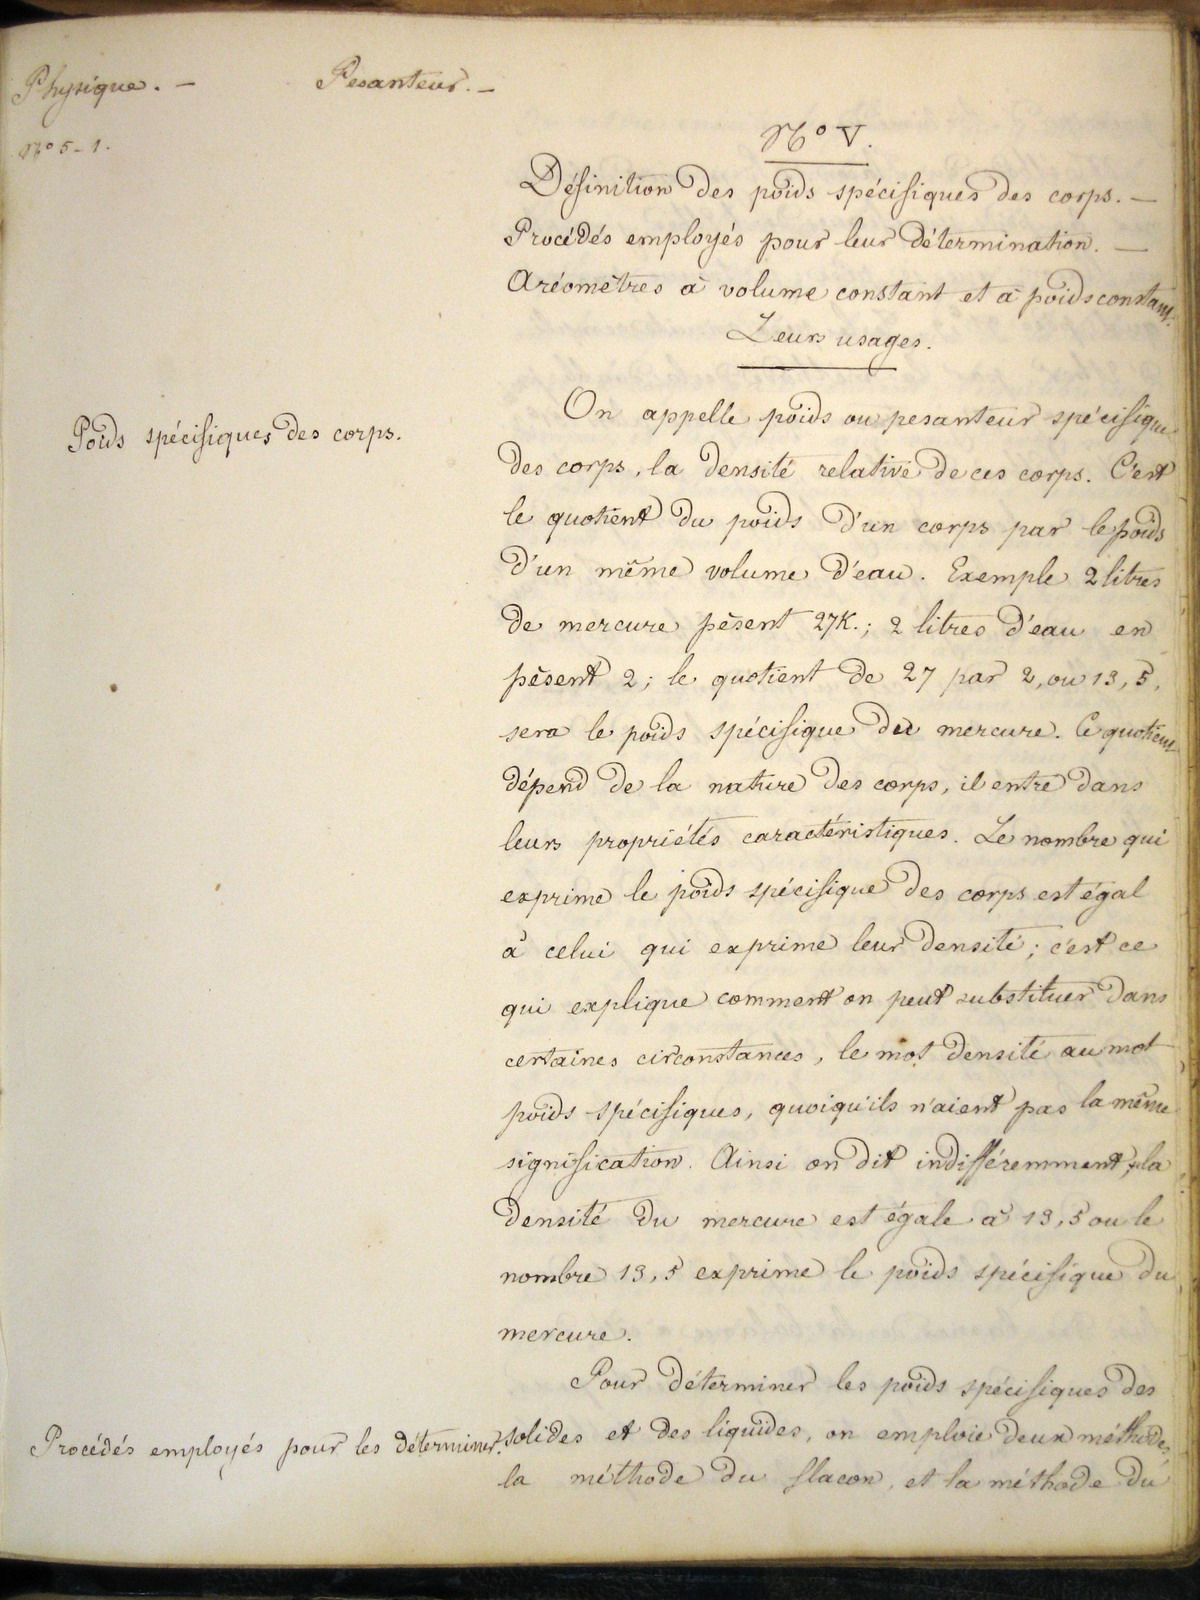 Physique. — Pesanteur. —
N° 5 - 1.
N° V.
Définition des poids spécifiques des corps. —
Procédés employés pour leur détermination. —
Aréomètres à volume constant et à poids constant.
Leurs usages.
Poids spécifiques des corps.
On appelle poids ou pesanteur spécifique
des corps, la densité relative de ces corps. C'est
le quotient du poids d'un corps par le poids
d'un même volume d'eau. Exemple 2 litres
de mercure pèsent 27K.; 2 litres d'eau en
pèsent 2; le quotient de 27 par 2, ou 13,5,
sera le poids spécifique du mercure. Ce quotient
dépend de la nature des corps, il entre dans
leurs propriétés caractéristiques. Le nombre qui
exprime le poids spécifique des corps est égal
à celui qui exprime leur densité; c'est ce
qui explique comment on peut substituer dans
certaines circonstances, le mot densité au mot
poids spécifiques, quoiqu'ils n'aient pas la même
signification. Ainsi on dit indifféremment, la
densité du mercure est égale à 13,5 ou le
nombre 13,5 exprime le poids spécifique du
mercure.
Pour déterminer les poids spécifiques des
Procédés employés pour les déterminer.
solides et des liquides, on emploie deux méthodes,
la méthode du flacon, et la méthode du